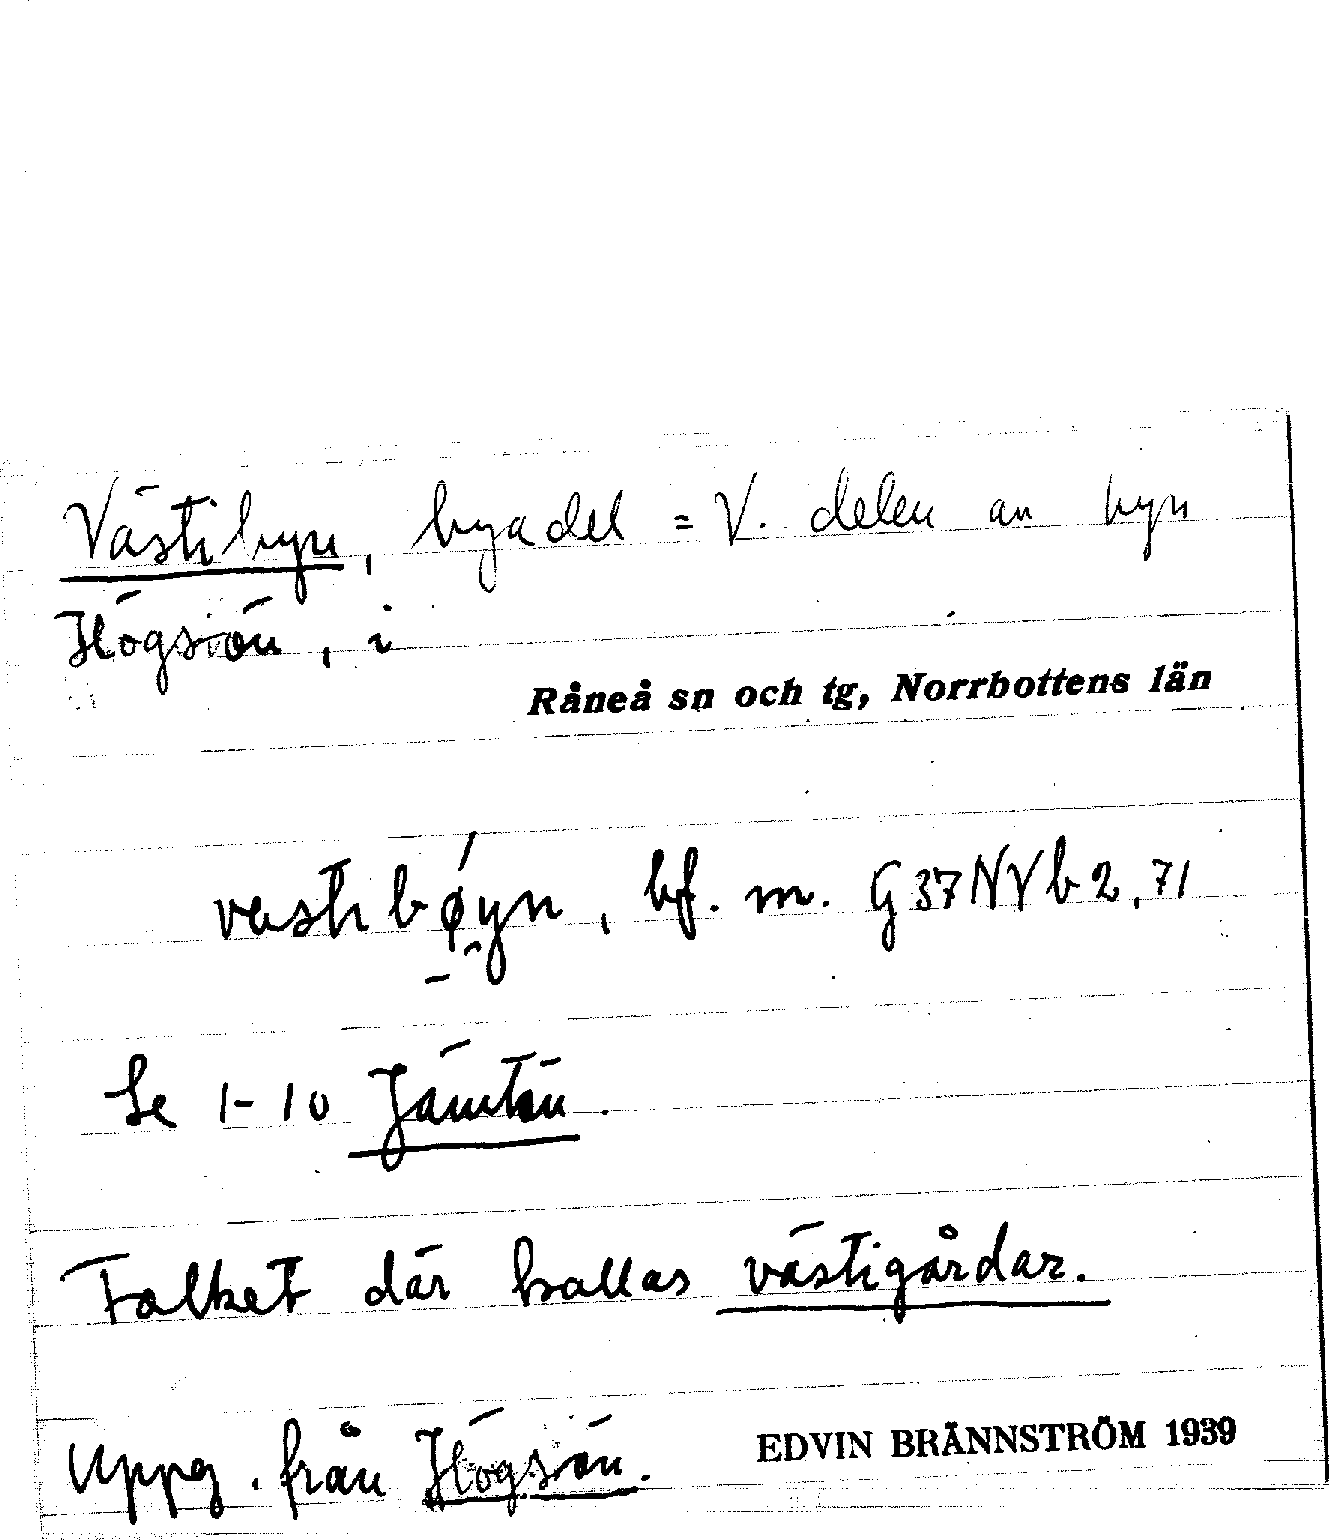 Västibyn, byadel = V. delen av byn
Högsön, i
Råneå sn och tg, Norrbottens län
bf. m. G37NVb2,71
Se 1-10 Jämtön.
Folket där kallas västigårdar.
Uppg. från Högsön. EDVIN BRÄNNSTRÖM 1939